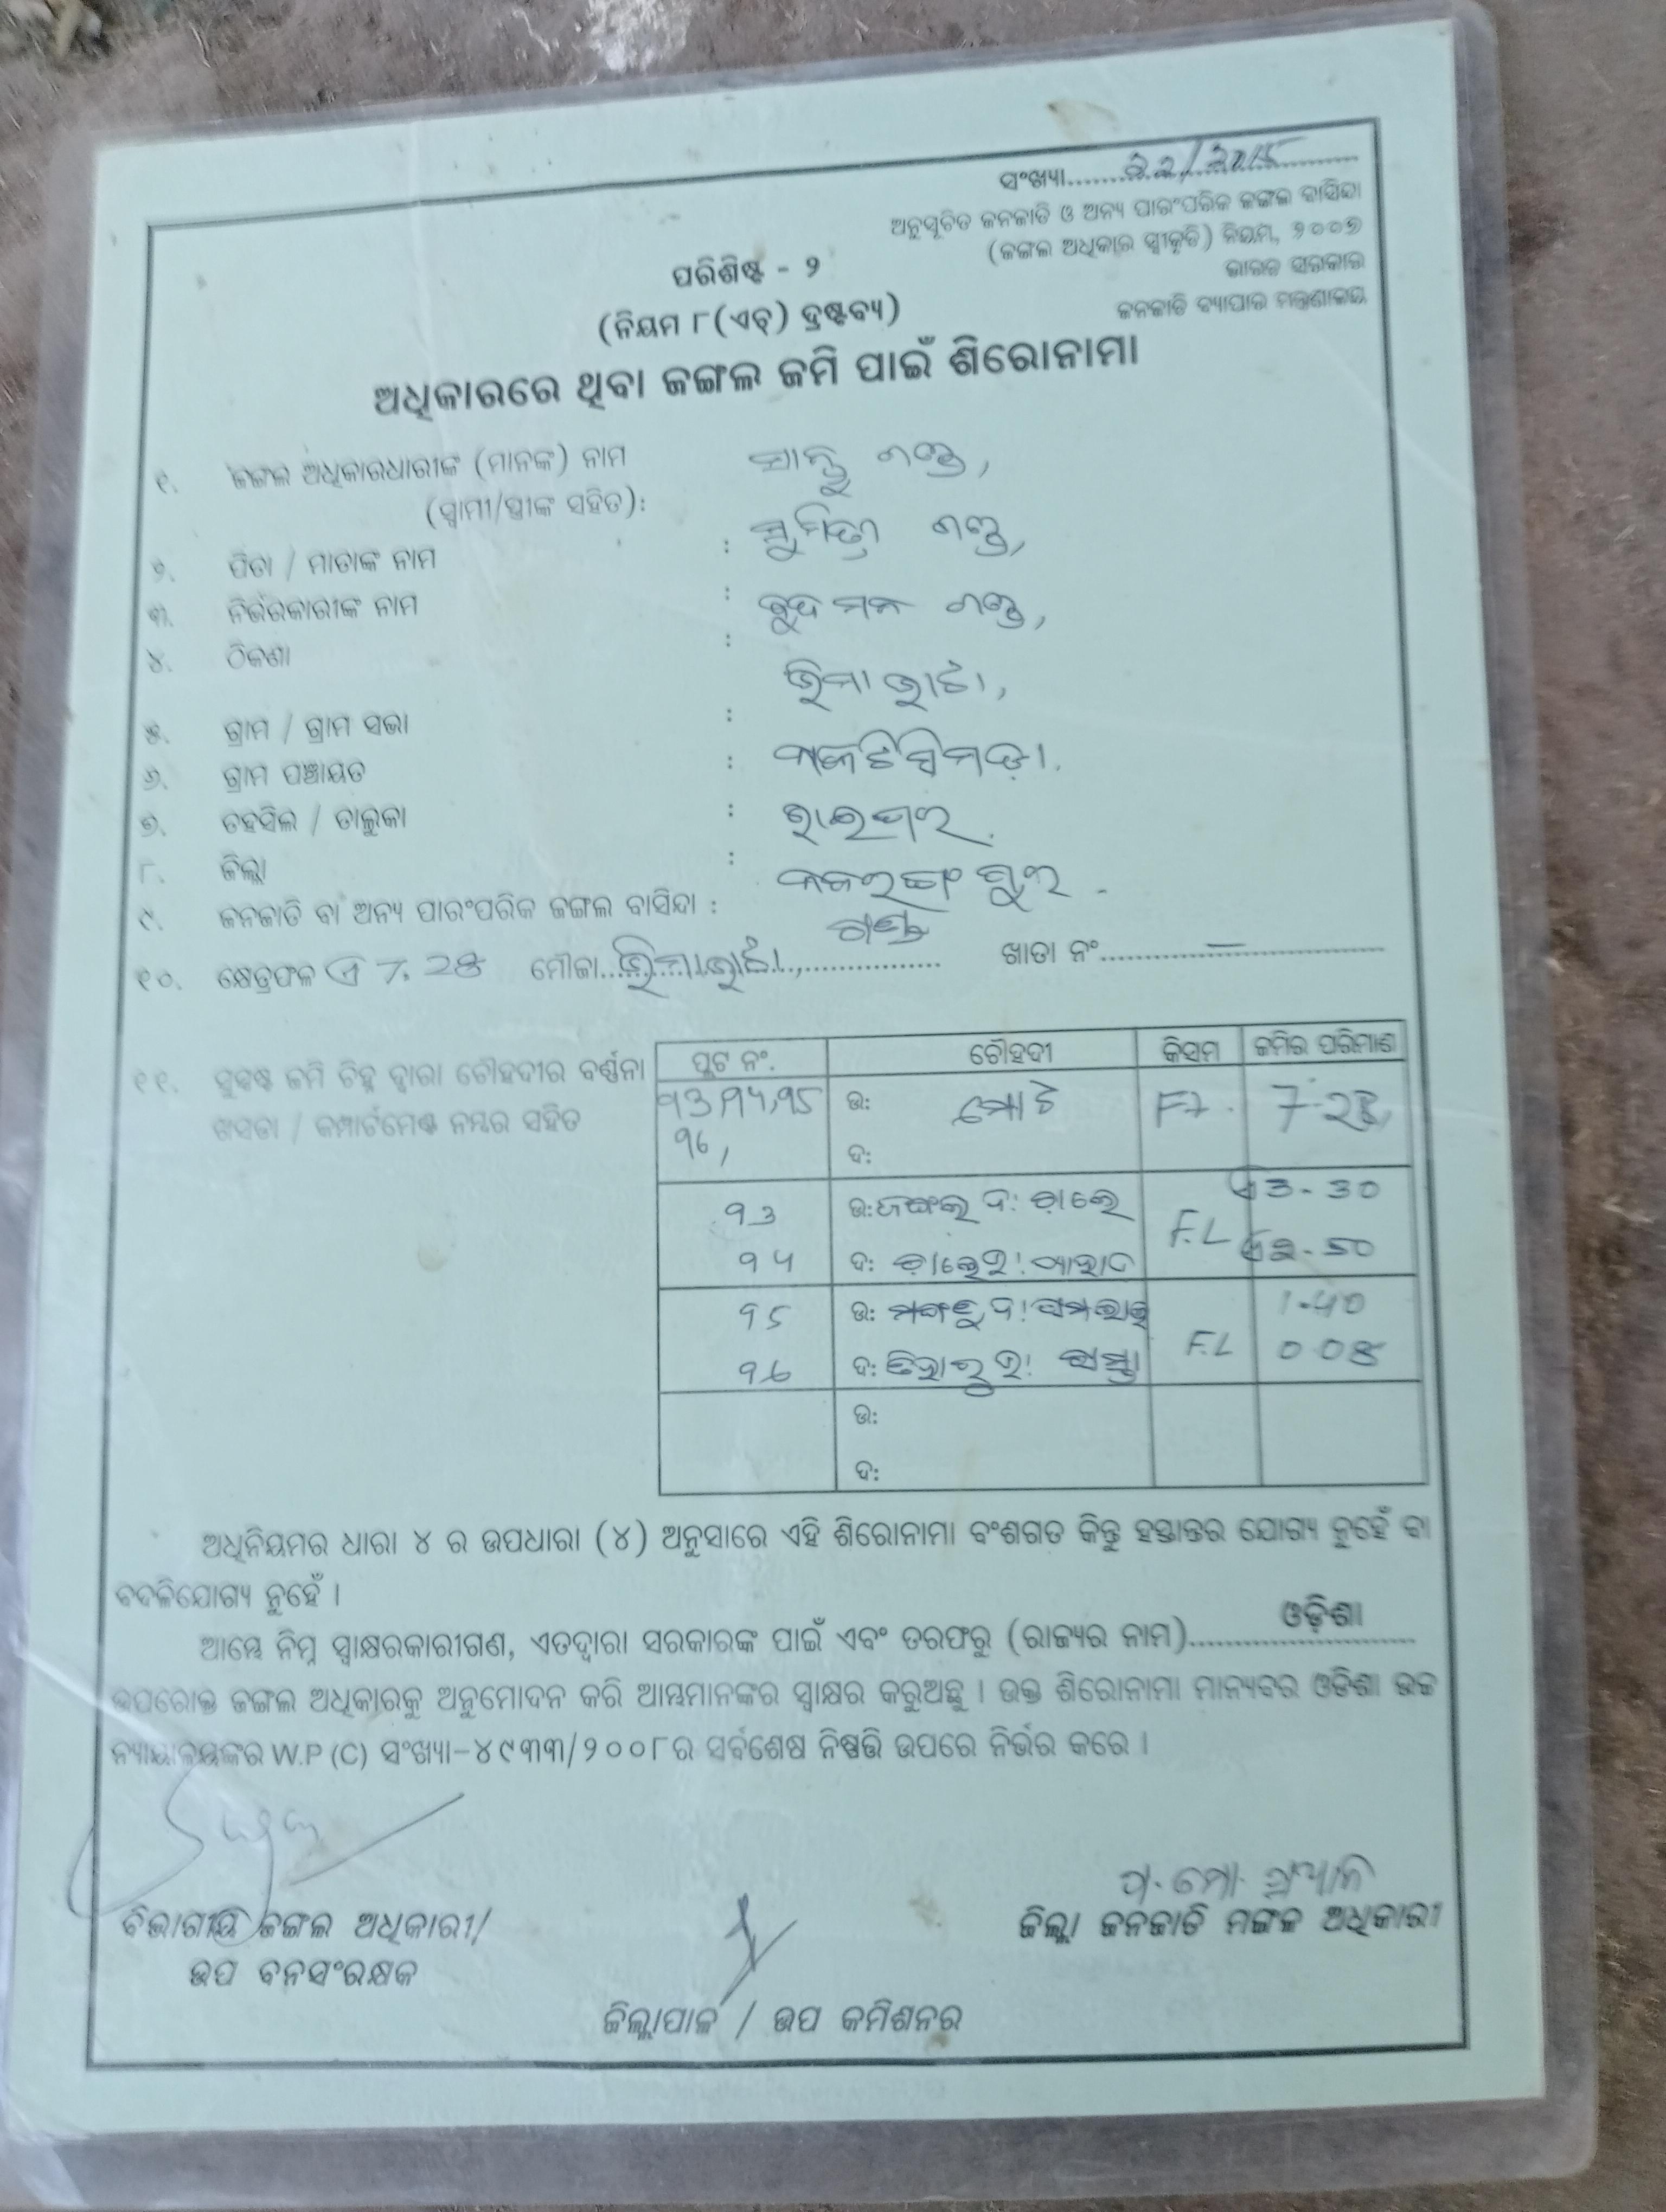 ସଂଖ୍ୟା............22/2015............
ଅନୁସୂଚିତ ଜନଜାତି ଓ ଅନ୍ୟ ପାରଂପରିକ ଜଙ୍ଗଲ ବାସିନ୍ଦା
(ଜଙ୍ଗଲ ଅଧିକାର ସ୍ୱୀକୃତି) ନିୟମ, ୨୦୦୭
ଭାରତ ସରକାର
ଜନଜାତି ବ୍ୟାପାର ମନ୍ତ୍ରଣାଳୟ
ପରିଶିଷ୍ଟ - ୨
(ନିୟମ ୮(ଏଚ୍) ଦ୍ରଷ୍ଟବ୍ୟ)
ଅଧିକାରରେ ଥିବା ଜଙ୍ଗଲ ଜମି ପାଇଁ ଶିରୋନାମା
୧. ଜଙ୍ଗଲ ଅଧିକାରଧାରୀଙ୍କ (ମାନଙ୍କ) ନାମ
(ସ୍ୱାମୀ/ସ୍ତ୍ରୀଙ୍କ ସହିତ):
ସୁମିତ୍ରା ଗଣ୍ଡ,
୨. ପିତା / ମାତାଙ୍କ ନାମ :
୩. ନିର୍ଭରକାରୀଙ୍କ ନାମ : ବୁଦ ମନ ଗଣ୍ଡ,
୪. ଠିକଣା :
ଭିମାଭାଟା,
୫. ଗ୍ରାମ / ଗ୍ରାମ ସଭା :
୬. ଗ୍ରାମ ପଞ୍ଚାୟତ :
୭. ତହସିଲ / ତାଲୁକା : ରାଇଘର.
୮. ଜିଲ୍ଲା : ନବରଙ୍ଗପୁର.
୯. ଜନଜାତି ବା ଅନ୍ୟ ପାରଂପରିକ ଜଙ୍ଗଲ ବାସିନ୍ଦା : ଗଣ୍ଡ
୧୦. କ୍ଷେତ୍ରଫଳ ଏ 7.28 ମୌଜା...ଭିମାଭାଟା,............ ଖାତା ନଂ............–............
୧୧. ସୁସ୍ପଷ୍ଟ ଜମି ଚିହ୍ନ ଦ୍ୱାରା ଚୌହଦୀର ବର୍ଣ୍ଣନା
ଖସଡା / କମ୍ପାର୍ଟମେଣ୍ଟ ନମ୍ବର ସହିତ
ପ୍ଲଟ ନଂ. ଚୌହଦୀ କିସମ ଜମିର ପରିମାଣ
93,94,95 ଉ: ମୋଟ 7.28
96, ଦ:
93 ଉ: ଜଙ୍ଗଲ ଦ: ଏ 3-30
94 ଦ: F.L ଏ 2-50
95 ଉ: 1-40
96 ଦ: F.L 0 08
ଉ:
ଦ:
ଅଧିନିୟମର ଧାରା ୪ ର ଉପଧାରା (୪) ଅନୁସାରେ ଏହି ଶିରୋନାମା ବଂଶଗତ କିନ୍ତୁ ହସ୍ତାନ୍ତର ଯୋଗ୍ୟ ନୁହେଁ ବା
ବଦଳିଯୋଗ୍ୟ ନୁହେଁ ।
ଆମ୍ଭେ ନିମ୍ନ ସ୍ୱାକ୍ଷରକାରୀଗଣ, ଏତଦ୍ୱାରା ସରକାରଙ୍କ ପାଇଁ ଏବଂ ତରଫରୁ (ରାଜ୍ୟର ନାମ)........ଓଡ଼ିଶା........
ଉପରୋକ୍ତ ଜଙ୍ଗଲ ଅଧିକାରକୁ ଅନୁମୋଦନ କରି ଆମ୍ଭମାନଙ୍କର ସ୍ୱାକ୍ଷର କରୁଅଛୁ । ଉକ୍ତ ଶିରୋନାମା ମାନ୍ୟବର ଓଡିଶା ଉଚ୍ଚ
ନ୍ୟାୟାଳୟଙ୍କର W.P (C) ସଂଖ୍ୟା-୪୯୩୩/୨୦୦୮ର ସର୍ବଶେଷ ନିଷ୍ପତ୍ତି ଉପରେ ନିର୍ଭର କରେ ।
ବିଭାଗୀୟ ଜଙ୍ଗଲ ଅଧିକାରୀ/
ଉପ ବନସଂରକ୍ଷକ
ଜିଲ୍ଲା ଜନଜାତି ମଙ୍ଗଳ ଅଧିକାରୀ
ଜିଲ୍ଲାପାଳ / ଉପ କମିଶନର